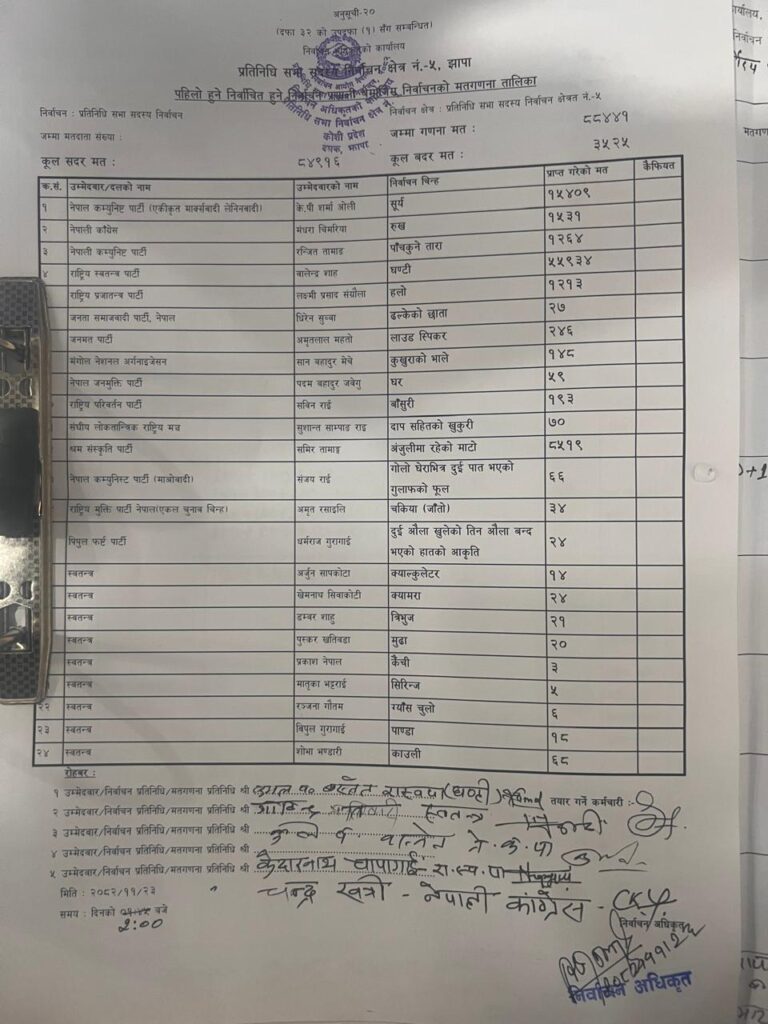 अनुसूची-२०
(दफा ३२ को उपदफा (१) सँग सम्बन्धित)
निर्वाचन अधिकृतको कार्यालय
प्रतिनिधि सभा सदस्य निर्वाचन क्षेत्र नं.-५, झापा
पहिलो हुने निर्वाचित हुने निर्वाचन प्रणाली बमोजिम निर्वाचनको मतगणना तालिका
निर्वाचन : प्रतिनिधि सभा सदस्य निर्वाचन निर्वाचन क्षेत्र : प्रतिनिधि सभा सदस्य निर्वाचन क्षेत्रत नं.-५
जम्मा मतदाता संख्या : जम्मा गणना मत : ८८४४१
कूल सदर मत : ८४९१६ कूल बदर मत : ३५२५
क्र.सं. उम्मेदवार/दलको नाम उम्मेदवारको नाम निर्वाचन चिन्ह प्राप्त गरेको मत कैफियत
१ नेपाल कम्युनिष्ट पार्टी (एकीकृत मार्क्सवादी लेनिनवादी) के.पी शर्मा ओली सूर्य १५४०९
२ नेपाली काँग्रेस मंधरा चिमरिया रुख १५३१
३ नेपाली कम्युनिष्ट पार्टी रन्जित तामाङ पाँचकुने तारा १२६४
४ राष्ट्रिय स्वतन्त्र पार्टी वालेन्द्र शाह घण्टी ५५९३४
राष्ट्रिय प्रजातन्त्र पार्टी लक्ष्मी प्रसाद संग्रौला हलो १२१३
जनता समाजवादी पार्टी, नेपाल धिरेन सुब्बा ढल्केको छाता २७
जनमत पार्टी अमृतलाल महतो लाउड स्पिकर २४६
मंगोल नेशनल अर्गनाइजेसन सान बहादुर मेचे कुखुराको भाले १४८
नेपाल जनमुक्ति पार्टी पदम बहादुर जबेगु घर ५९
राष्ट्रिय परिवर्तन पार्टी सविन राई बाँसुरी १९३
संघीय लोकतान्त्रिक राष्ट्रिय मञ्च सुशान्त साम्पाङ राइ दाप सहितको खुकुरी ७०
श्रम संस्कृति पार्टी समिर तामाङ अंजुलीमा रहेको माटो ८५१९
नेपाल कम्युनिस्ट पार्टी (माओवादी) संजय राई गोलो घेराभित्र दुई पात भएको गुलाफको फूल ६६
राष्ट्रिय मुक्ति पार्टी नेपाल(एकल चुनाव चिन्ह) अमृत रसाइलि चकिया (जाँतो) ३४
पिपुल फर्ष्ट पार्टी धर्मराज गुरागाई दुई औला खुलेको तिन औला बन्द भएको हातको आकृति २४
स्वतन्त्र अर्जुन सापकोटा क्याल्कुलेटर १४
स्वतन्त्र खेमनाथ सिवाकोटी क्यामरा २४
स्वतन्त्र डम्बर शाहु त्रिभुज २१
स्वतन्त्र पुस्कर खतिवडा मुढा २०
स्वतन्त्र प्रकाश नेपाल कैंची ३
स्वतन्त्र मातृका भट्टराई सिरिन्ज ५
२२ स्वतन्त्र रञ्जना गौतम ग्याँस चुलो ६
२३ स्वतन्त्र विपुल गुरागाई पाण्डा १८
२४ स्वतन्त्र शोभा भण्डारी काउली ६८
रोहबर :
१ उम्मेदवार/निर्वाचन प्रतिनिधि/मतगणना प्रतिनिधि श्री रास्वपा (घण्टी) तयार गर्ने कर्मचारी :-
२ उम्मेदवार/निर्वाचन प्रतिनिधि/मतगणना प्रतिनिधि श्री स्वतन्त्र
३ उम्मेदवार/निर्वाचन प्रतिनिधि/मतगणना प्रतिनिधि श्री ने.क.पा
४ उम्मेदवार/निर्वाचन प्रतिनिधि/मतगणना प्रतिनिधि श्री
५ उम्मेदवार/निर्वाचन प्रतिनिधि/मतगणना प्रतिनिधि श्री केदारनाथ चापागाई रा.स्व.पा
मिति : २०८२/११/२३ " चन्द्र खत्री - नेपाली काँग्रेस -
समय : दिनको बजे
2:00
निर्वाचन अधिकृत
निर्वाचन अधिकृत